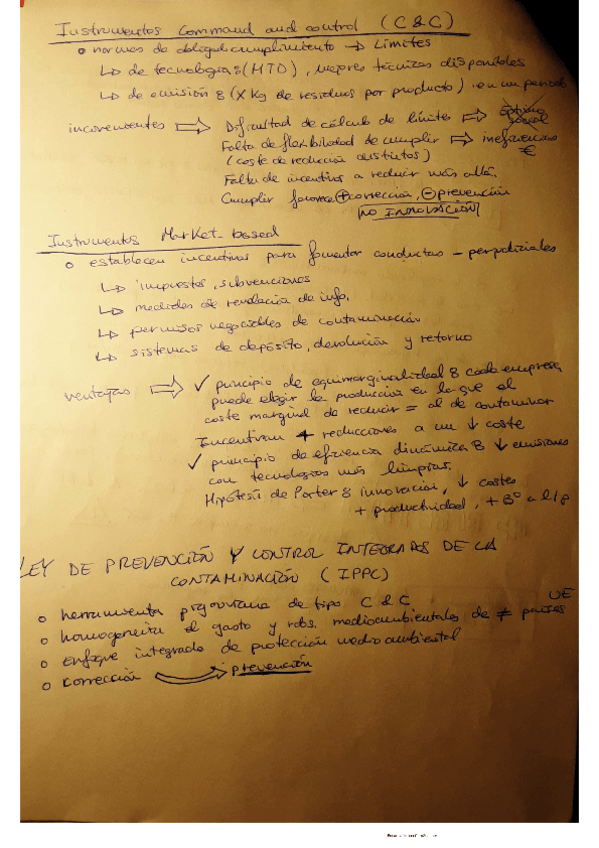 Instrumentos Command and control (C&C)
o normas de obligat cumplimiento → Límites
↳ de tecnología: (MTD), mejores técnicas disponibles
↳ de emisión: (X Kg de residuos por producto) en un periodo
inconvenientes ⇒ Dificultad de cálculo de límites ⇒ óptimo social
Falta de flexibilidad de cumplir ⇒ ineficiencias
(coste de reducción distintos) €
Falta de incentivos a reducir más allá.
Cumplir favorece ⊕ corrección, ⊖ prevención
NO INNOVACIÓN
Instrumentos Market based
o establecen incentivos para fomentar conductas - perjudiciales
↳ impuestos, subvenciones
↳ medidas de revelación de info.
↳ permisos negociables de contaminación
↳ sistemas de depósito, devolución y retorno
ventajas ⇒ ✓ principio de equimarginalidad: cada empresa
puede elegir la producción en la que el
coste marginal de reducir = al de contaminar
Incentivan + reducciones a un ↓ coste
✓ principio de eficiencia dinámica: ↓ emisiones
con tecnologías más limpias.
Hipótesis de Porter: innovación, ↓ costes
+ productividad, + Bº a l/p
LEY DE PREVENCIÓN Y CONTROL INTEGRADOS DE LA
CONTAMINACIÓN (IPPC)
o herramienta pigouviana de tipo C&C
o homogeneiza el gasto y rdos. medioambientales de ≠ países UE
o enfoque integrado de protección medioambiental
o corrección prevención